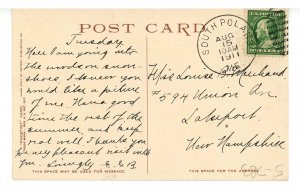 POST CARD
Tuesday
Here I am going into
the woods on snow-
shoes I knew you
would like a picture
of me. Have a good
time the rest of the
summer, and keep
real well. Thank you
very pleasant rest with
you.
THIS SPACE MAY BE USED FOR MESSAGE
SOUTH POLA
AUG
10 AM
1911
ME
Miss Louise
#594 Union Ave
Lakeport
New Hampshire
THIS SPACE FOR THE ADDRESS